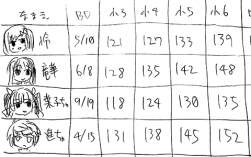 なまえ BD 小3 小4 小5 小6
5/10 121 127 133 139
6/8 128 135 142 148
9/19 118 124 130 135
4/15 131 138 145 152